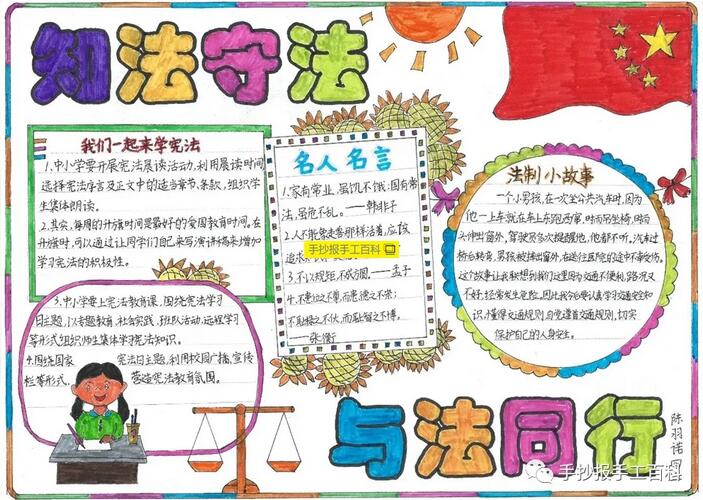 知法守法
我们一起来学宪法
1.中小学要开展宪法晨读活动,利用晨读时间
选择宪法序言及正文中的适当章节、条款,组织学
生集体朗读。
2.其实,每周的升旗时间是最好的爱国教育时间。在
升旗时,可以通过让同学们自己来写演讲稿来增加
学习宪法的积极性。
3.中小学要上宪法教育课,围绕宪法学习
日主题,以专题教育,社会实践,班队活动,远程学习
等形式组织师生集体学习宪法知识。
4.围绕国家 宪法日主题,利用校园广播,宣传
栏等形式, 营造宪法教育氛围。
名人名言
1.家有常业,虽饥不饿;国有常
法,虽危不乱。——韩非子
2.人不能像走兽那样活着,应该
手抄报手工百科
追求
3.不以规矩,不成方圆。——孟子
4.不患位之不尊,而患德之不崇;
不耻禄之不伙,而耻智之不博。
——张衡
法制小故事
一个小男孩,在一次坐公共汽车时,因为
他一上车就在车上东跑西窜,时而吊坐椅,时而
头伸出窗外,驾驶员多次提醒他,他都不听。汽车过
桥台转弯,男孩被抹出窗外,在送往医院的途中不幸身伤。
这个故事让我联想到我们这里因为交通不便利,路况又
不好,经常发生危险。因此我今后要认真学习交通安全知
识,懂得交通规则,自觉遵守交通规则,切实
保护自己的人身安全。
与法同行
陈羽诺
手抄报手工百科